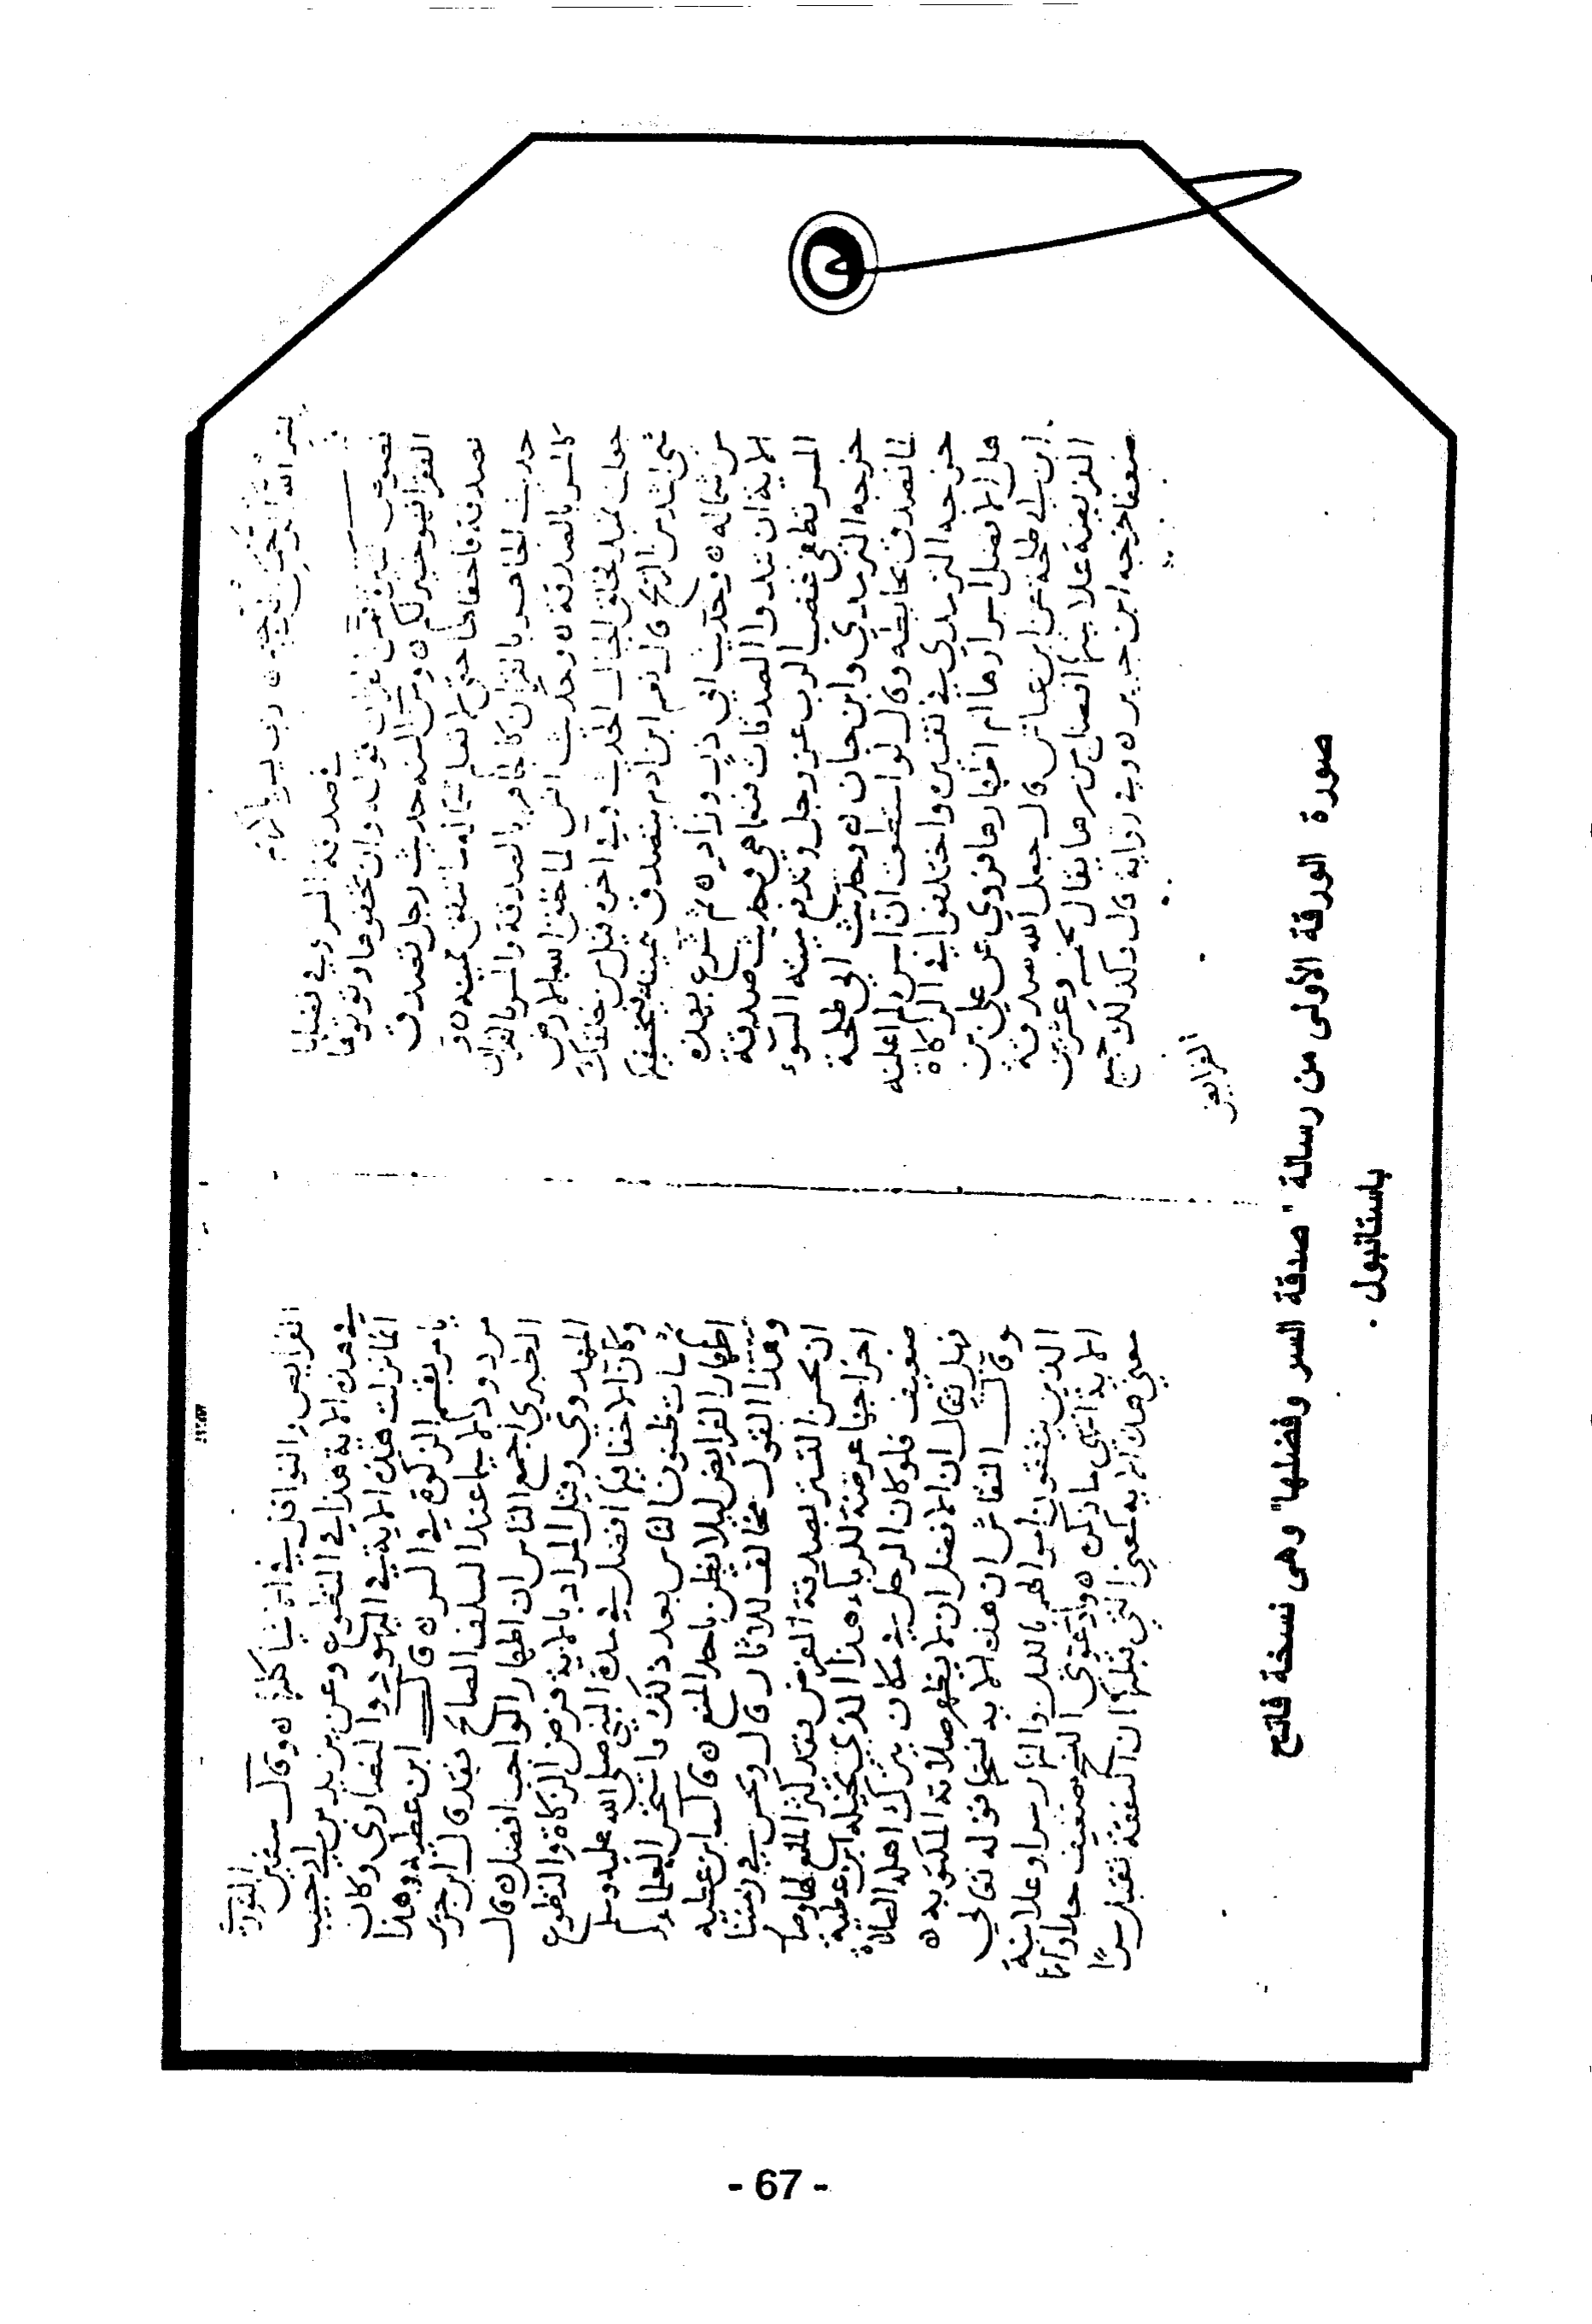 بسم الله الرحمن الرحيم رب يسر يا كريم
في صدقة السر وفي فضلها
نصوص كثيرة فمن القران قوله وان تخفوها وتوتوها
الفقرا فهو خير لكم ومن السنة حديث رجل تصدق
بصدقة فاخفاها حتى لا تعلم شماله ما تنفق يمينه و
حديث الجاهر بالقران كالجاهر بالصدقة والمسر بالقران
كالمسر بالصدقة وحديث انس لما خلق الله الارض
جعلت تميد فخلق الجبال الحديث وفي اخره قيل من خلقك
شي اشد من الريح قال نعم ابن ادم يتصدق بيمينه يخفيها
من شماله وحديث ابي ذر وزاد ثم شرع بهذه
الاية ان تبدوا الصدقات فنعما هي وحديث صدقة
السر تطفي غضب الرب عز وجل وتدفع ميتة السوء
خرجه الترمذي وابن حبان وحديث ابي طلحة
لما تصدق بحايطه وقال لو استطعت ان اسره لم اعلنه
خرجه الترمذي في تفسيره واختلفوا في الزكاة
هل الافضل اسرارها ام اظهارها فروي عن علي بن
ابي طلحة عن ابن عباس قال جعل الله صدقة
الفريضة علانيتها افضل من سرها يقال بخمسة وعشرين
ضعفا خرجه ابن جرير وفي رواية قال وكذلك جميع
الفرايض
الفرايض والنوافل في الاشيا كلها وقال سفين الثوري
في هذه الاية هذا في التطوع وعن يزيد بن ابي حبيب
انما نزلت هذه الاية في اليهود والنصارى وكان
يامر بقسم الزكوة في السر قال ابن عطية وهذا
مردود لا سيما عند السلف الصالح فقد قال ابن جرير
الطبري اجمع الناس ان اظهار الواجب افضل قال
المهدوي وقيل المراد بالاية فرض الزكاة والتطوع
وكان الاخفا فيها افضل في مدة النبي صلى الله عليه وسلم
ثم ساءت ظنون الناس بعد ذلك واستحسن العلماء
اظهار الفرايض ليلا يظن باحد المنع قال ابن عطية
وهذا القول مخالف للاثار قال ويحسن في زمننا
ان يحسن التستر بصدقة الفرض فقد كثر المانع لها وصار
اخراجها عرضة للرياء هذا الذي تخيله ابن عطية
ضعيف فلو كان الرجل في مكان يترك اهله الصلاة
فهل يقال ان الافضل ان لا يظهر صلاته المكتوبة
وقال النقاش ان هذه الاية نسخها قوله تعالى
الذين ينفقون اموالهم بالليل والنهار سرا وعلانية
الاية انتهى ما ذكره ودعوى النسخ ضعيف جدا وانما
معنى هذه الاية كمعنى التي قبلها ان النفقة تقبل سرا
صورة الورقة الأولى من رسالة "صدقة السر وفضلها" وهى نسخة فاتح
باستانبول .
- 67 -